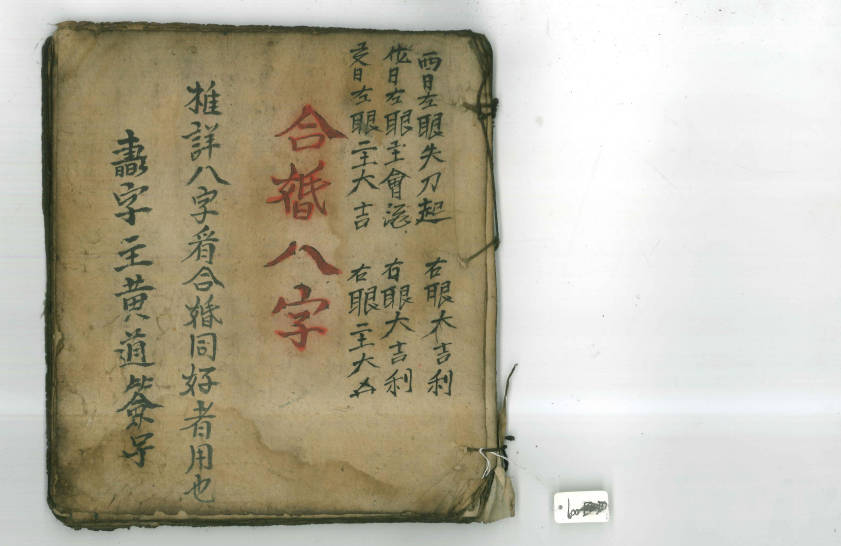 酉日左眼失刀起 右眼大吉利
日左眼主會 右眼大吉利
日左眼主大吉 右眼主大凶
合婚八字
推詳八字看合婚同好者用也
書字主黄道簽子